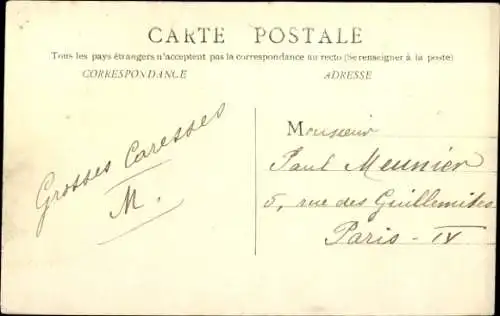 CARTE POSTALE
Tous les pays étrangers n'acceptent pas la correspondance au recto (Se renseigner à la poste)
CORRESPONDANCE
ADRESSE
Grosses Caresses
M.
Monsieur
Paul Meunier
5, rue des Guillemites
Paris - IV